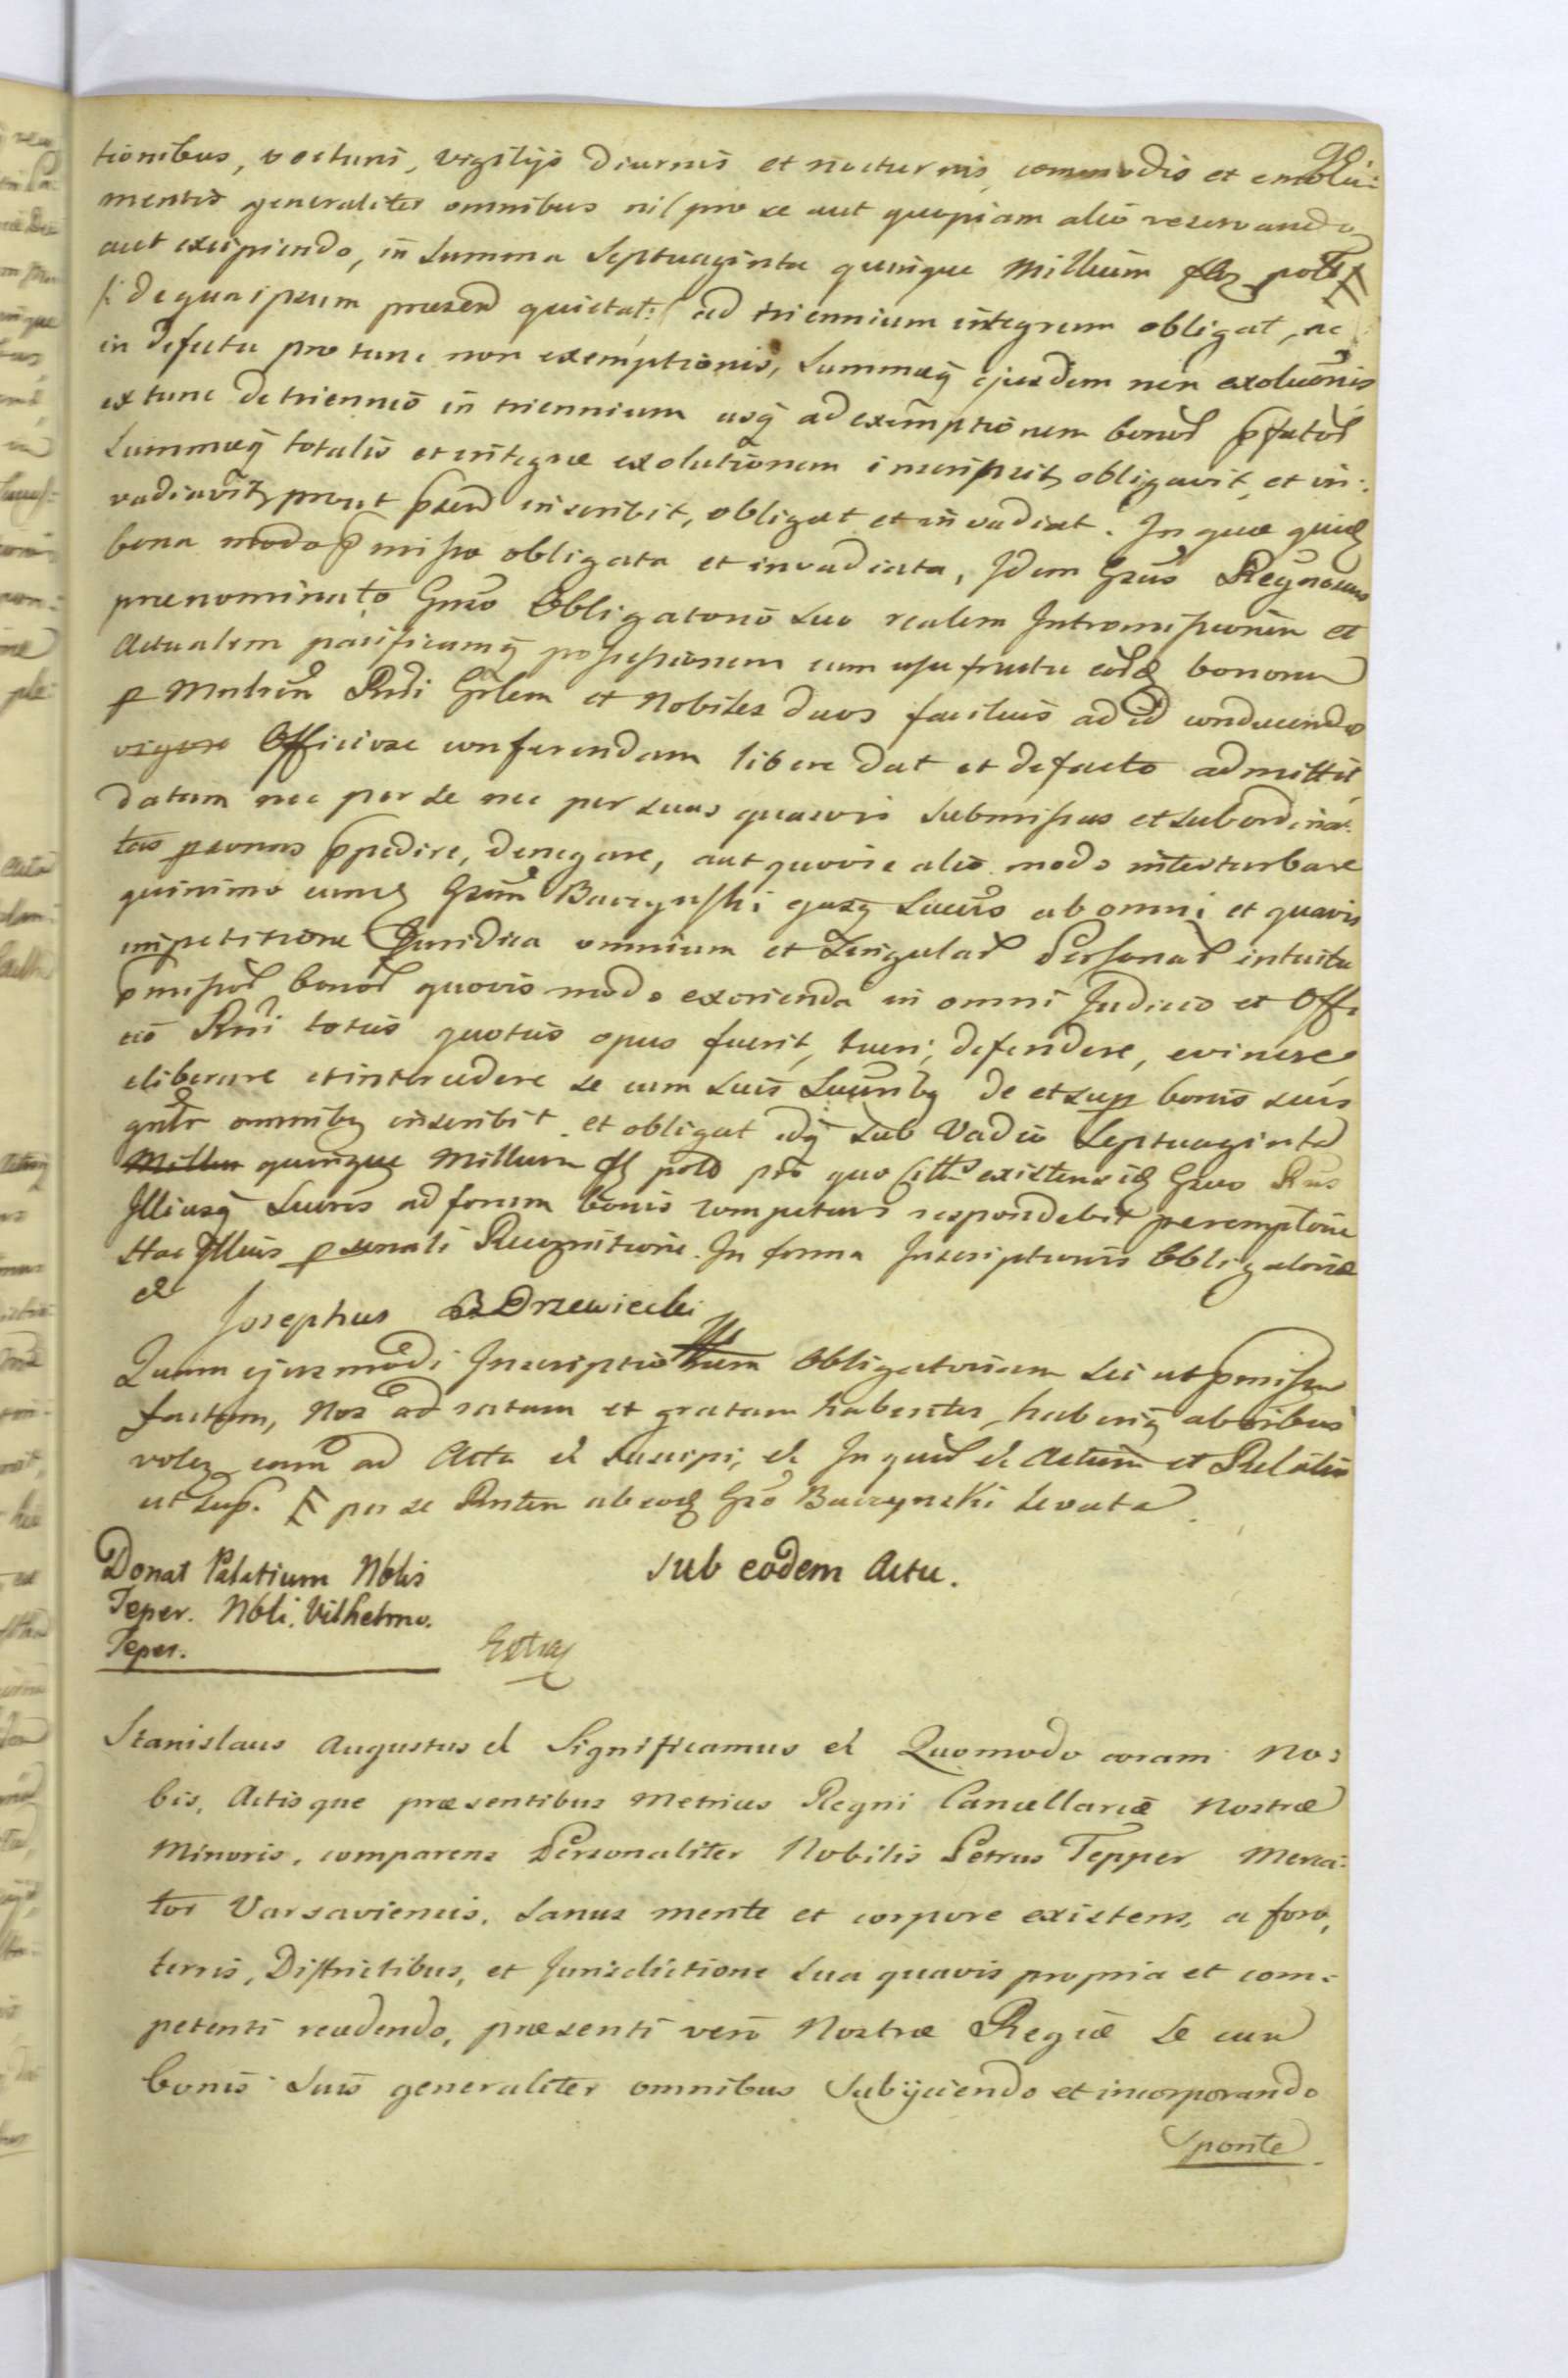 tionibus, vecturis, vigilijs diurnis et nocturnis, commodis et emolu:
mentis generaliter omnibus nil pro se aut quopiam alio reservando
aut excipiendo, in Summa Septuaginta quinque Millium flor polo
/: de qua ipsum præsen quietat :/ ad triennium integrum obligat, ac
in defectu pro tunc non exemptionis, Summæq ejusdem non exolutionis
ex tunc de triennio in triennium usq ad exemptionem bonor pfator
Summæq totalis et integræ exolutionem inscripsit, obligavit, et in:
vadiavit, prout pnsen inscribit, obligat et invadiat. In quæ quid
bona modo pmisso obligata et invadiata, Idem Gsus Recognoscens
prænominato Gnso Obligatorio suo realem Intromissionem et
Actualem pacificamq possessionem cum usufructu eord bonorum
p Mnlrem Rndi Grlem et Nobiles duos facilius ad id conducendo
vigore Officiose conferendam libere dat et de facto admittit,
datam nec per se nec per suas quasvis submissas et subordina:
tas psonas ppedire, denegare, aut quovis alio modo interturbare
quinimo eund Gsum Baczynski ejusq Succrs ab omni et quavis
impetitione Juridica omnium et Singular Personar intuitu
pmissor bonor quovis modo exorienda in omni Judicio et Offi
cio Rni toties quoties opus fuerit, tueri, defendere, evincere
eliberare et intercedere se cum suis Succrıbq de et sup bonis suis
gnlr omnibq inscribit et obligat idq sub Vadio Septuaginta
Millen quinque Millium fl polo pro quo citts existens id Gsus Rns
Illiusq Succres ad forum bonis competens respondebit peremptorie
Hac Illius psonali Recognitione. In forma Inscriptionis Obligatoriæ
et
Josephus B Drzewiecki
Quam ejusmodi Inscriptio nem Obligatoriam sic ut pmissu
factam, Nos ad ratam et gratam habentes, haberiq ab oibus
volen eam ad Acta et suscipi, et In quor et Actum et Relatio
ut Sup. per se Rnten ab eod Gso Baczynski levata.
Donat Palatium Nblis
Teper. Nbli. Vilhelmo.
Teper.
sub eodem Actu.
Extra
Stanislaus Augustus et Significamus et Quomodo coram No:
bis, Actisque præsentibus Metrices Regni Cancellariæ Nostræ
Minoris, comparens Personaliter Nobilis Petrus Tepper Merca:
tor Varsaviensis, sanus mente et corpore existens, a foro,
terris, Districtibus, et Jurisdictione sua quavis propria et com:
petenti recedendo, præsenti vero Nostræ Regiæ se cum
bonis suis generaliter omnibus subijciendo et incorporando
sponte